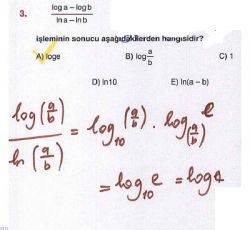 3. log a – log b / ln a – ln b
işleminin sonucu aşağıdakilerden hangisidir?
A) loge B) log a/b C) 1
D) ln10 E) ln(a – b)
log(a/b) / ln(a/b) = log₁₀(a/b) · log₍a/b₎e
= log₁₀e = log e